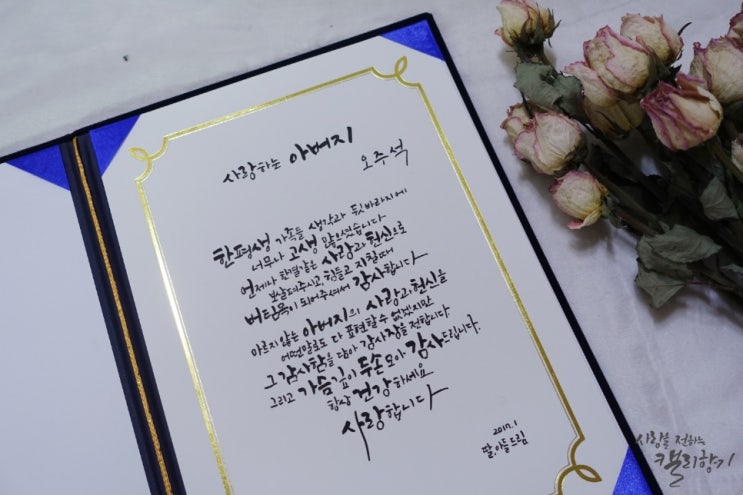 사랑하는 아버지
오주석
한평생 가족들 생각과 뒷바라지에
너무나 고생 많으셨습니다
언제나 한결같은 사랑과 헌신으로
보살펴주시고, 힘들고 지칠때
버팀목이 되어주셔서 감사합니다
마르지 않는 아버지의 사랑과 헌신을
어떤말로도 다 표현할 수 없겠지만
그 감사함을 담아 감사장을 전합니다
그리고 가슴깊이 두손모아 감사드립니다.
항상 건강하세요
사랑합니다
2017.1
딸,아들 드림
사랑을 전하는
캘리향기